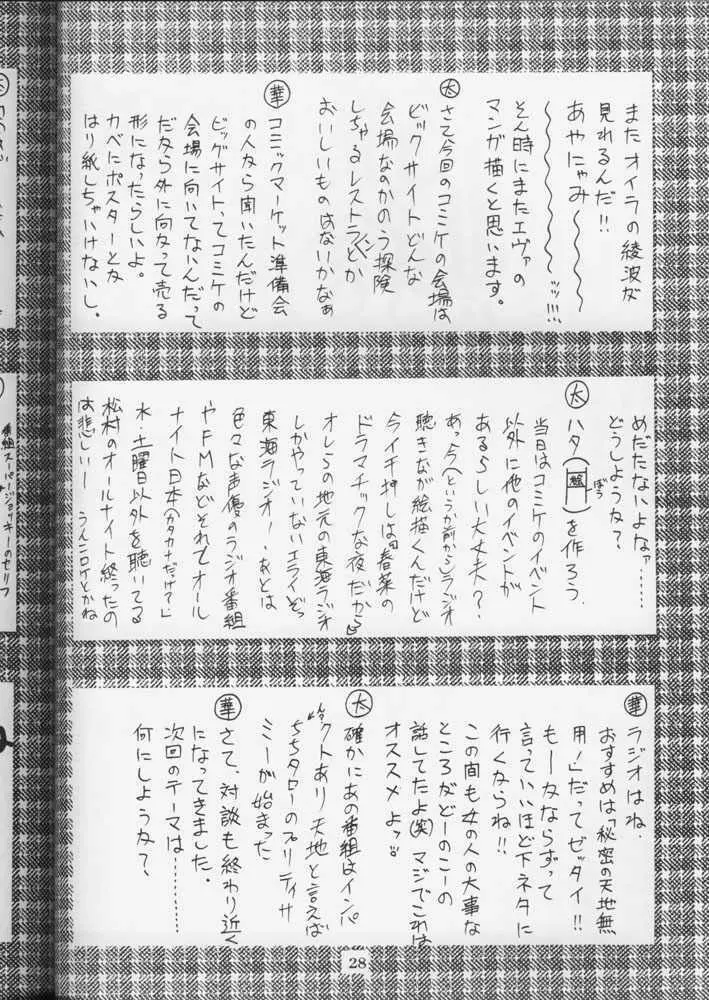 またオイラの綾波が
見れるんだ!!
あやにゃみ〜〜
〜〜〜〜〜〜ッッ!!!
そん時にまたエヴァの
マンガ描くと思います。
太 さて今回のコミケの会場は
ビックサイトどんな
会場なのかのう探険
しちゃるレストランとか
おいしいものはないかなぁ
華 コミックマーケット準備会
の人から聞いたんだけど
ビッグサイトってコミケの
会場に向いてないんだって
だから外に向かって売る
形になったらしいよ。
カベにポスターとか
はり紙しちゃいけないし。
めだたないよなァ……
どうしようか?
太 ハタ(絵 ぼう)を作ろう.
当日はコミケのイベント
以外に他のイベントが
あるらしい大丈夫?
あっ今(というか前から)ラジオ
聴きながら絵描くんだけど
今イチ押しは『春菜の
ドラマチックな夜だから』
オレらの地元の東海ラジオ
しかやっていないエライぞっ
東海ラジオ!.あとは
色々な声優のラジオ番組
やFMなどそれとオール
ナイト日本(カタカナだっけ?)
水・土曜日以外を聴いてる
松村のオールナイト終ったの
は悲しいー
華 ラジオはね.
おすすめは「秘密の天地無
用!」だってゼッタイ!!
もーかならずって
言っていいほど下ネタに
行くからね!!
この間も女の人の大事な
ところがどーのこーの
話してたよ(笑)マジでこれは
オススメよッ
太 確かにあの番組はインパ
クトあり天地と言えば
ミーが始まった
華 さて、対談も終わり近く
になってきました。
次回のテーマは………
何にしようか?
番組スーパージョッキーのセリフ
28